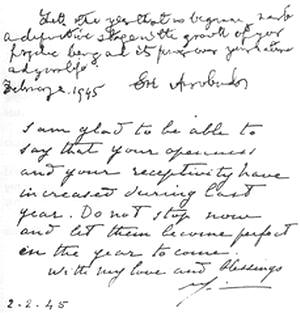 Let the year that is beginning mark
a definitive stage in the growth of your
psychic being and its power over your nature
and your life
February 2. 1945 Sri Aurobindo
I am glad to be able to
say that your openness
and your receptivity have
increased during last
year. Do not stop now
and let them become perfect
in the year to come.
With my love and blessings
2-2-45